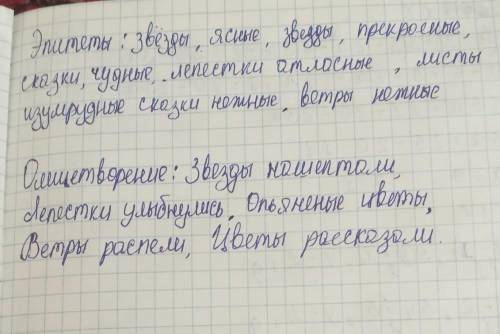 Эпитеты: звёзды, ясные, звезды, прекрасные,
сказки, чудные, лепестки атлосные, листы
изумрудные сказки нежные, ветры нежные
Олицетворение: Звезды нашептали,
Лепестки улыбнулись, Опьяненые цветы,
Ветры распели, Цветы рассказали.